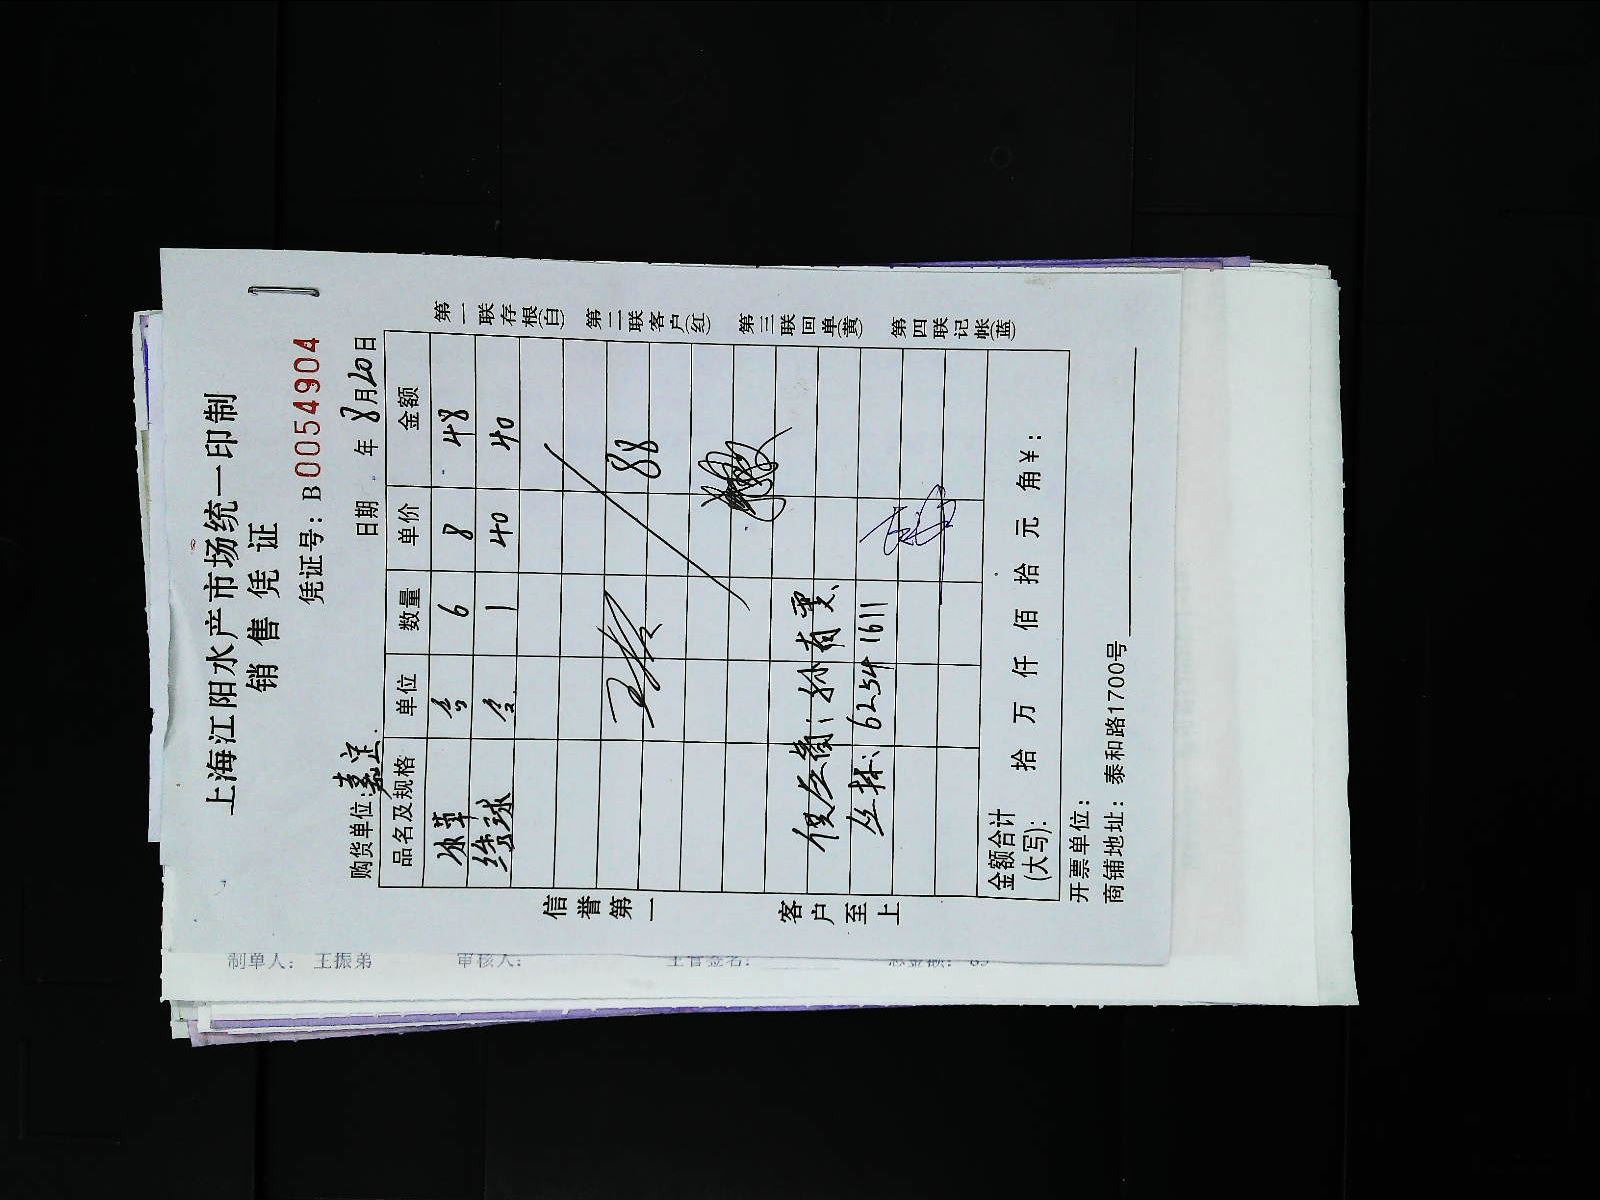 上海江阳水产市场统一印制
销售凭证
凭证号：B0054904
购货单位：嘉定
日期 年 8月20日
品名及规格 单位 数量 单价 金额
6 8 48
1 40 40
88
6254 1611
金额合计
(大写)： 拾 万 仟 佰 拾 元 角￥：
开票单位：
商铺地址：泰和路1700号
信誉第一
客户至上
第一联存根(白)
第二联客户(红)
第三联回单(黄)
第四联记帐(蓝)
制单人： 王振弟 审核人： 主管签名：